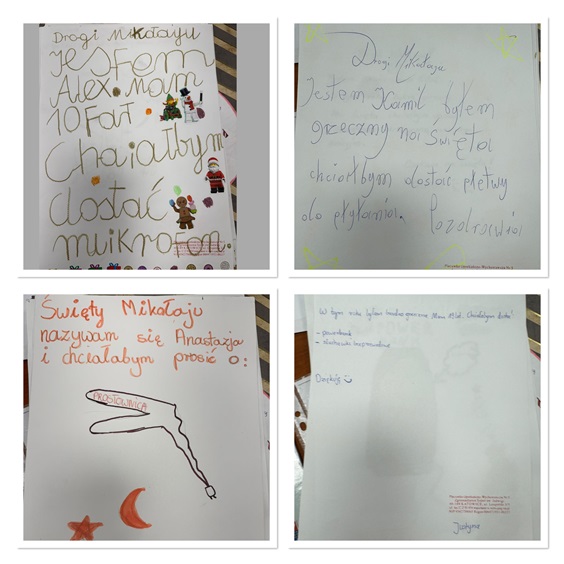 Drogi Mikołaju
Jestem
Alex. Mam
10 Fat
Chaiałbym
dostać
muikrofon.
Drogi Mikołaju
Jestem Kamil byłem
grzeczny na Święta
chciałbym dostać płetwy
do pływania. Pozdrowia
Święty Mikołaju
nazywam się Anastazja
i chciałabym prosić o:
PROSTOWNICA
W tym roku byłam bardzo grzeczna Mam
- powerbank
- słuchawki bezprzewodowe
Dziękuję
Justyna